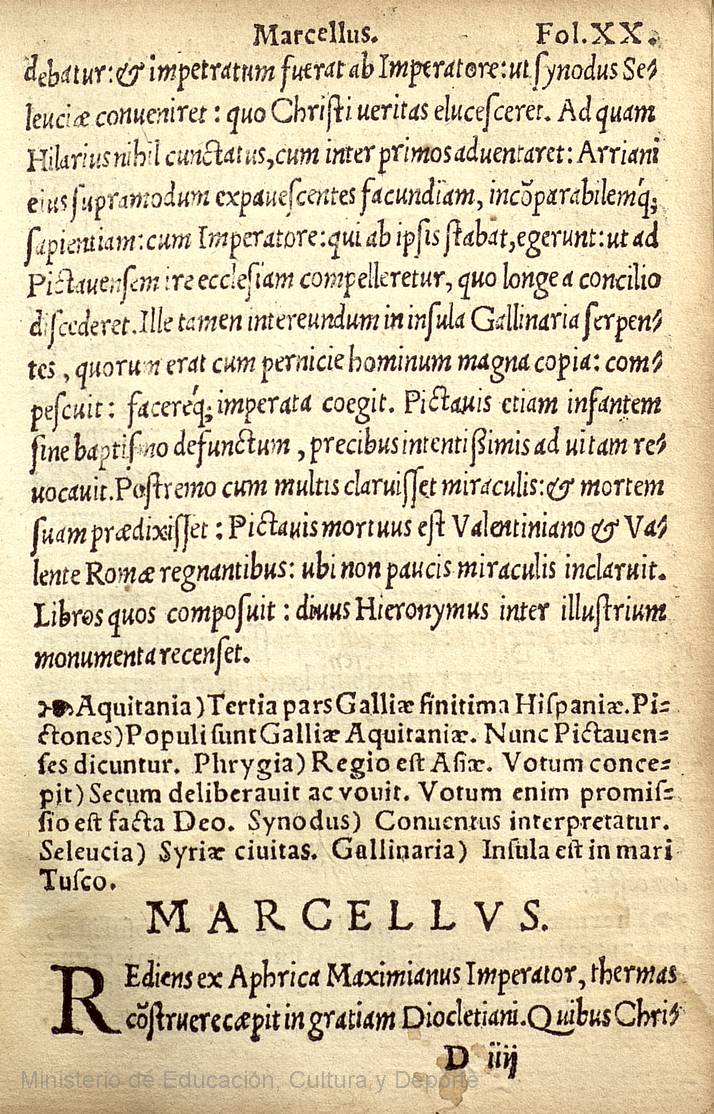 Marcellus. Fol.XX.
debatur:& impetratum fuerat ab Imperatore:ut synodus Se-
leuciæ conueniret : quo Christi ueritas elucesceret. Ad quam
Hilarius nihil cunctatus,cum inter primos aduentaret: Arriani
eius supramodum expauescentes facundiam, incõparabilemq́;
sapientiam:cum Imperatore:qui ab ipsis stabat,egerunt:ut ad
Pictauensem ire ecclesiam compelleretur, quo longe a concilio
discederet.Ille tamen intereundum in insula Gallinaria serpen-
tes , quorum erat cum pernicie hominum magna copia: com-
pescuit : facereq́; imperata coegit. Pictauis etiam infantem
sine baptismo defunctum , precibus intentißimis ad uitam re-
uocauit.Postremo cum multis claruisset miraculis:& mortem
suam prædixisset : Pictauis mortuus est Valentiniano & Va-
lente Romæ regnantibus: ubi non paucis miraculis inclaruit.
Libros quos composuit : diuus Hieronymus inter illustrium
monumenta recenset.
Aquitania)Tertia pars Galliæ finitima Hispaniæ.Pi=
ctones)Populi sunt Galliæ Aquitaniæ. Nunc Pictauen=
ses dicuntur. Phrygia) Regio est Asiæ. Votum conce=
pit) Secum deliberauit ac vouit. Votum enim promis=
sio est facta Deo. Synodus) Conuentus interpretatur.
Seleucia) Syriæ ciuitas. Gallinaria) Insula est in mari
Tusco.
MARCELLVS.
REdiens ex Aphrica Maximianus Imperator, thermas
cõstruere cæpit in gratiam Diocletiani.Quibus Chri-
D iiij
Ministerio de Educación, Cultura y Deporte